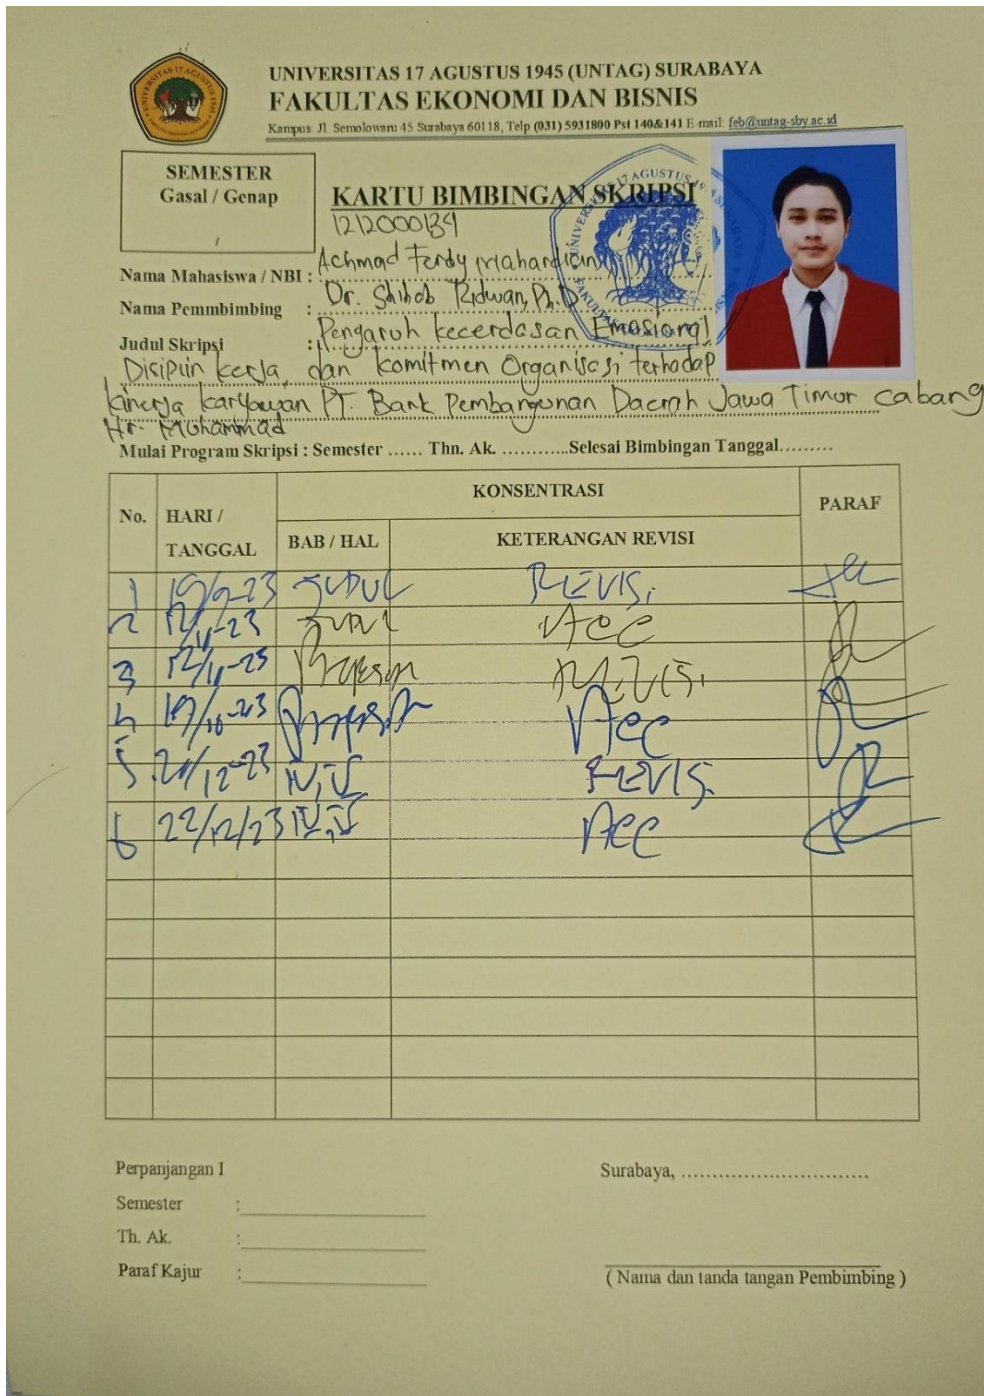 UNIVERSITAS 17 AGUSTUS 1945 (UNTAG) SURABAYA
FAKULTAS EKONOMI DAN BISNIS
Kampus: Jl. Semolowaru 45 Surabaya 60118, Telp (031) 5931800 Pst 140&141 E-mail: feb@untag-sby.ac.id
SEMESTER
Gasal / Genap
/
KARTU BIMBINGAN SKRIPSI
Nama Mahasiswa / NBI : Achmad Ferdy
Nama Pemmbimbing : Dr. Shihab Ridwan, Ph.D
Judul Skripsi : Pengaruh kecerdasan Emosional
Disiplin kerja, dan komitmen Organisasi terhadap
kinerja karyawan PT. Bank Pembangunan Daerah Jawa Timur cabang
Hr. Muhammad
Mulai Program Skripsi : Semester ...... Thn. Ak. ............Selesai Bimbingan Tanggal.........
No. HARI / TANGGAL KONSENTRASI PARAF
BAB / HAL KETERANGAN REVISI
1 JUDUL REVISI
2 Acc
3 REVISI
4 Acc
5 IV, V REVISI
6 22/12/23 IV, V Acc
Perpanjangan I
Surabaya, ..............................
Semester :
Th. Ak. :
Paraf Kajur :
( Nama dan tanda tangan Pembimbing )